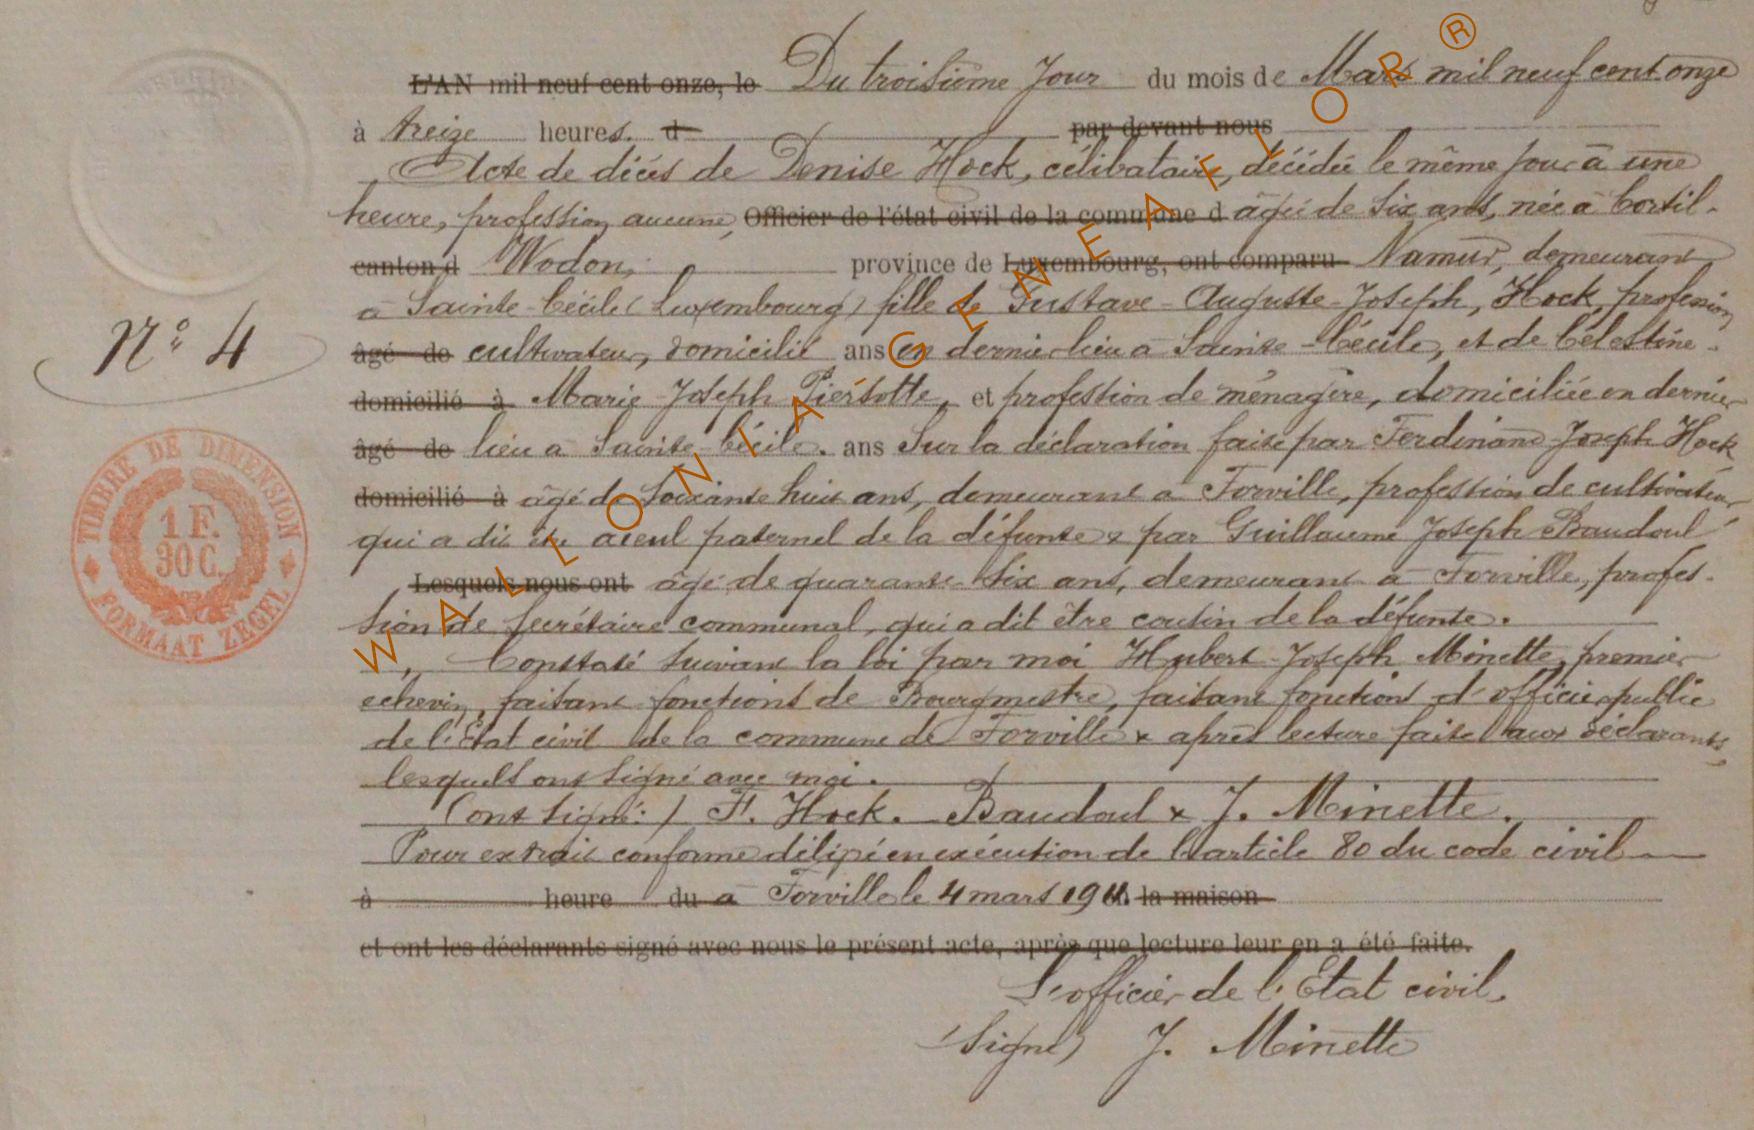 L'AN mil neuf cent onze, le Du troisième jour du mois de Mars mil neuf cent onze
à treize heures. d par devant nous
Acte de décès de Denise Hock, célibataire, décédée le même jour à une
heure, profession aucune, Officier de l'état civil de la commune d âgée de six ans, née à Cortil-
canton d Wodon, province de Luxembourg, ont comparu Namur, demeurant
à Sainte-Cécile (Luxembourg) fille de Gustave-Auguste-Joseph, Hock, profession
N° 4
âgé de cultivateur, domicilié ans en dernier lieu à Sainte-Cécile, et de Célestine-
domicilié à Marie-Joseph Piérsotte, et profession de ménagère, domiciliée en dernier
âgé de lieu à Sainte-Cécile. ans Sur la déclaration faite par Ferdinand-Joseph Hock
domicilié à âgé de soixante huit ans, demeurant à Forville, profession de cultivateur
qui a dit être aïeul paternel de la défunte & par Guillaume Joseph Baudoul
Lesquels nous ont âgé de quarante-six ans, demeurant à Forville, profes-
sion de secrétaire communal, qui a dit être cousin de la défunte.
Constaté suivant la loi par moi Hubert-Joseph Minette, premier
echevin, faisant fonctions de Bourgmestre, faisant fonctions d'officier public
de l'Etat civil de la commune de Forville & après lecture faite aux déclarants,
lesquels ont signé avec moi.
(ont signé:) F. Hock. Baudoul & J. Minette.
Pour extrait conforme délivré en exécution de l'article 80 du code civil
à heure du à Forville le 4 mars 1911. la maison
et ont les déclarants signé avec nous le présent acte, après que lecture leur en a été faite.
L'officier de l'Etat civil.
(signé) J. Minette
TIMBRE DE DIMENSION
1 F.
30 C.
FORMAAT ZEGEL
WALLONIA GENEAFLOR ®